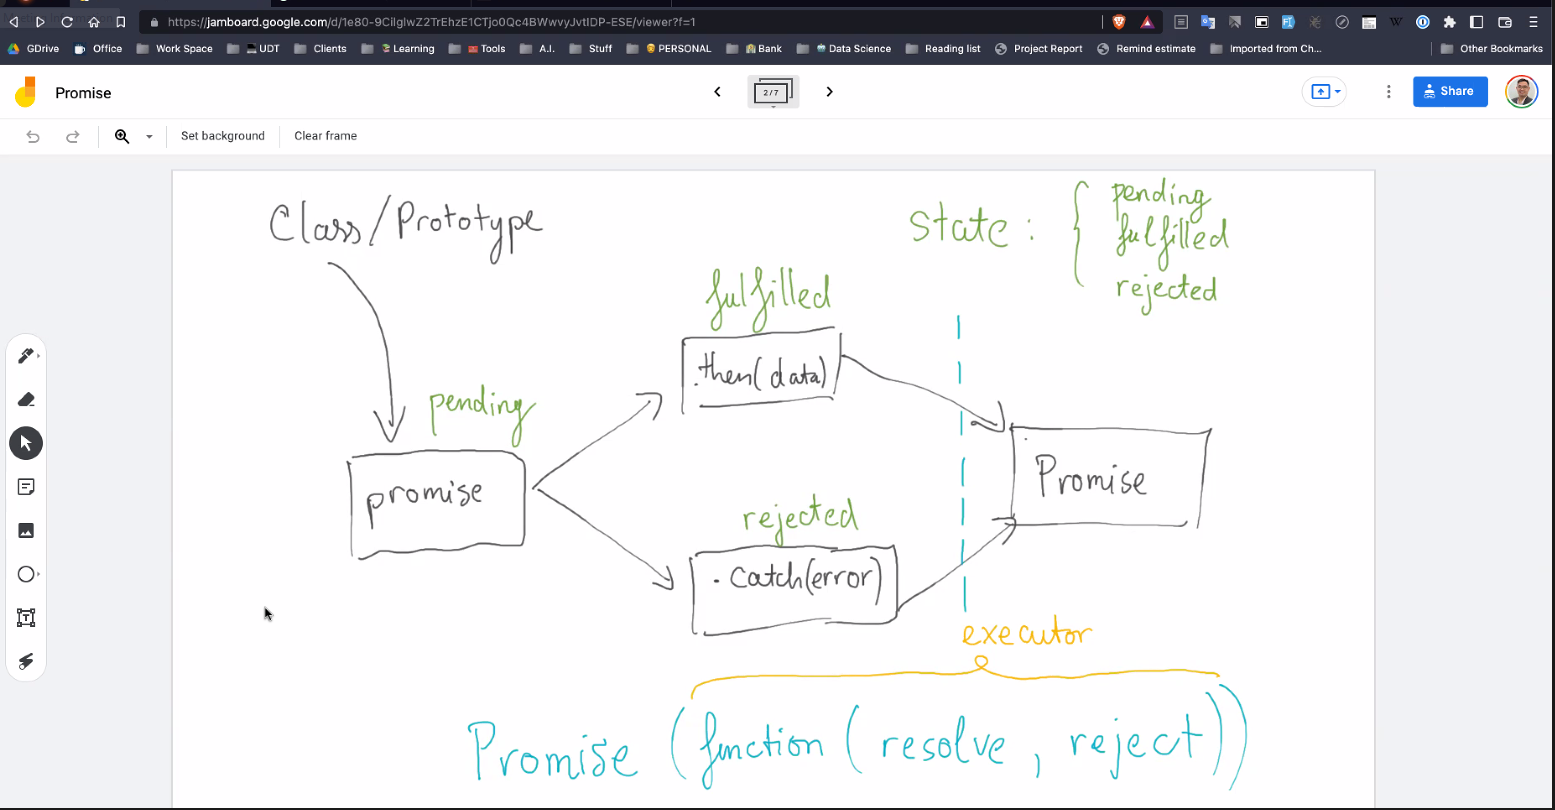 https://jamboard.google.com/d/1e80-9CiIgIwZ2TrEhzE1CTjo0Qc4BWwvyJvtIDP-ESE/viewer?f=1
GDrive Office Work Space UDT Clients Learning Tools A.I. Stuff PERSONAL Bank Data Science Reading list Project Report Remind estimate Imported from Ch... Other Bookmarks
Promise
2/7
Share
Set background Clear frame
Class/Prototype
State: { pending
fulfilled
rejected
fulfilled
.then(data)
pending
promise
Promise
rejected
.catch(error)
executor
Promise (function (resolve, reject))